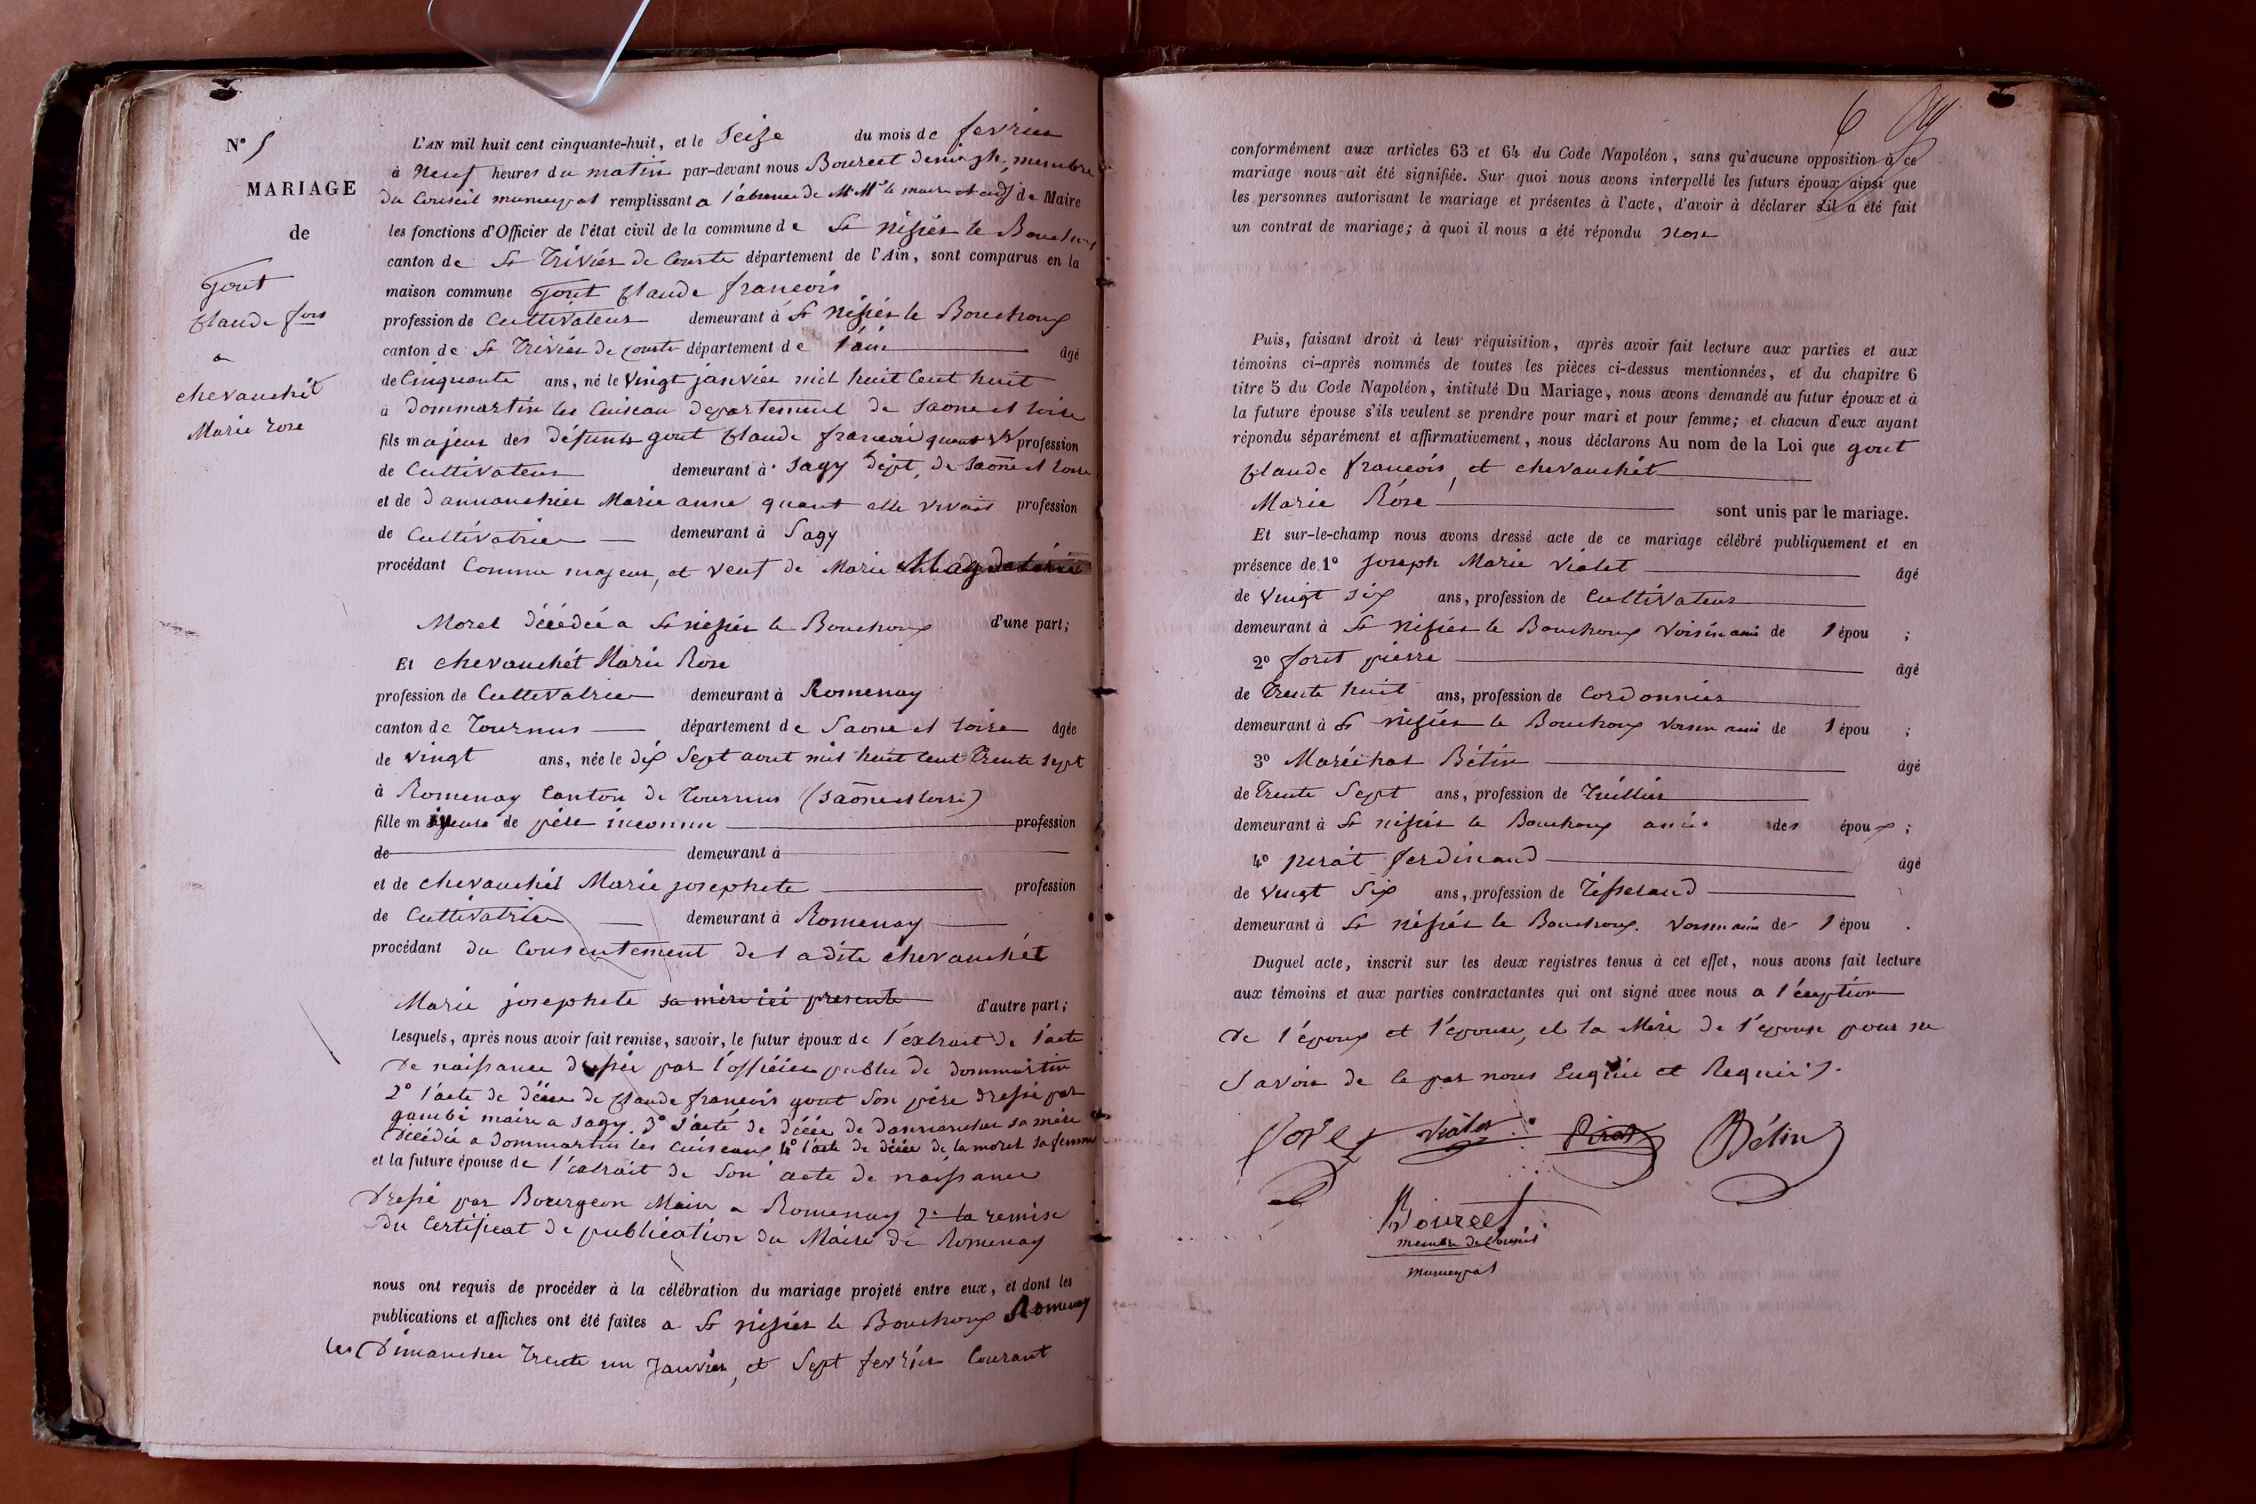 N° 5
MARIAGE
de
Gout
Claude fois
a
chevauchét
Marie rose
L'AN mil huit cent cinquante-huit, et le Seize du mois de fevrier
à Neuf heures du matin par-devant nous Bourcet membre
du Conseil municipal remplissant a l'absence de Mr Mr le maire et adjt de Maire
les fonctions d'Officier de l'état civil de la commune de St Nisiér le Bouchoux
canton de St Triviér de Courte département de l'Ain, sont comparus en la
maison commune Gout Claude francois
profession de Cultivateur demeurant à St Nisiér le Bouchoux
canton de St Triviér de courte département de l'ain âgé
de Cinquante ans, né le Vingt janvier mil huit Cent huit
à dommartin les Cuiseau departement de Saone et loire
fils majeur des défunts gout Claude francois quant profession
de Cultivateur demeurant à Sagy dépt, de Saône et loire
et de dannanchier Marie anne quant elle vivait profession
de Cultivatrice demeurant à Sagy
procédant Comme majeur, et veuf de Marie Magdelainé
Morel décédée a St nisiér le Bouchoux d'une part;
Et chevauchét Marie Rose
profession de Cultivatrice demeurant à Romenay
canton de Tournus département de Saone et loire âgée
de Vingt ans, née le dix Sept aout mil huit Cent Trente Sept
à Romenay Canton de Tournus (Saône et loire)
fille mineure de père inconnu profession
de demeurant à
et de chevauchét Marie josephete profession
de Cultivatrice demeurant à Romenay
procédant du Consentement de ladite chevauchét
Marie josephete sa mère ici presente d'autre part;
Lesquels, après nous avoir fait remise, savoir, le futur époux de l'extrait de l'acte
de naissance dressé par l'officier public de dommartin
2° l'acte de décée de Claude francois gout Son père dressé par
gambé maire a Sagy. 3° l'acte de décée de dannanchier sa mère
décédée a dommartin les Cuiseaux 4° l'acte de décée de la morel sa femme
et la future épouse de l'extrait de Son acte de naissance
dressé par Bourgeon Maire a Romenay 2° la remise
du Certificat de publication du Maire de Romenay
nous ont requis de procéder à la célébration du mariage projeté entre eux, et dont les
publications et affiches ont été faites a St nisiér le Bouchoux Romenay
les Dimanches Trente un Janvier, et Sept fevrier Courant
6
conformément aux articles 63 et 64 du Code Napoléon, sans qu'aucune opposition à ce
mariage nous ait été signifiée. Sur quoi nous avons interpellé les futurs époux ainsi que
les personnes autorisant le mariage et présentes à l'acte, d'avoir à déclarer s'il a été fait
un contrat de mariage; à quoi il nous a été répondu Non
Puis, faisant droit à leur réquisition, après avoir fait lecture aux parties et aux
témoins ci-après nommés de toutes les pièces ci-dessus mentionnées, et du chapitre 6
titre 5 du Code Napoléon, intitulé Du Mariage, nous avons demandé au futur époux et à
la future épouse s'ils veulent se prendre pour mari et pour femme; et chacun d'eux ayant
répondu séparément et affirmativement, nous déclarons Au nom de la Loi que gout
Claude francois, et chevauchét
Marie Rose sont unis par le mariage.
Et sur-le-champ nous avons dressé acte de ce mariage célébré publiquement et en
présence de 1° Joseph Marie Violet âgé
de Vingt Six ans, profession de Cultivateur
demeurant à St Nisiér le Bouchoux Voisin ami de l'épou ;
2° foret pierre âgé
de Trente huit ans, profession de Cordonnier
demeurant à St nisiér le Bouchoux Voisin ami de l'épou ;
3° Maréchat Bétin âgé
de Trente Sept ans, profession de Tuillier
demeurant à St nisiér le Bouchoux amie des époux ;
4° perat ferdinand âgé
de Vingt Six ans, profession de Tisserand
demeurant à St nisiér le Bouchoux. Voisin ami de l'épou .
Duquel acte, inscrit sur les deux registres tenus à cet effet, nous avons fait lecture
aux témoins et aux parties contractantes qui ont signé avec nous a l'éxeption
de l'époux et l'épouse, et la Mère de l'épouse pour ne
Savoir de ce par nous Enquis et Requis.
foret Violet Pirat Bétin
Bourcet
membre du Conseil
municipal